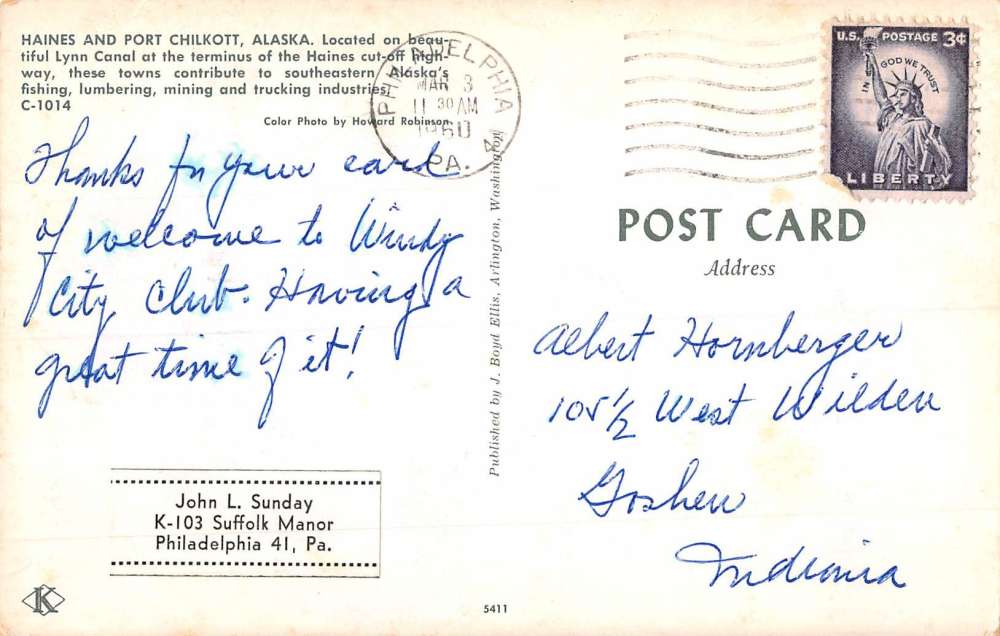 HAINES AND PORT CHILKOTT, ALASKA. Located on beau-
tiful Lynn Canal at the terminus of the Haines cut-off high-
way, these towns contribute to southeastern Alaska's
fishing, lumbering, mining and trucking industries.
C-1014
Color Photo by Howard Robinson
PHILADELPHIA
MAR 3
11 30 AM
1960
PA.
U.S. POSTAGE 3¢
IN GOD WE TRUST
LIBERTY
Thanks for your card
of welcome to Windy
City Club. Having a
great time of it!
John L. Sunday
K-103 Suffolk Manor
Philadelphia 41, Pa.
K
Published by J. Boyd Ellis, Arlington, Washington
5411
POST CARD
Address
Albert Hornberger
105 1/2 West Wilden
Goshen
Indiana